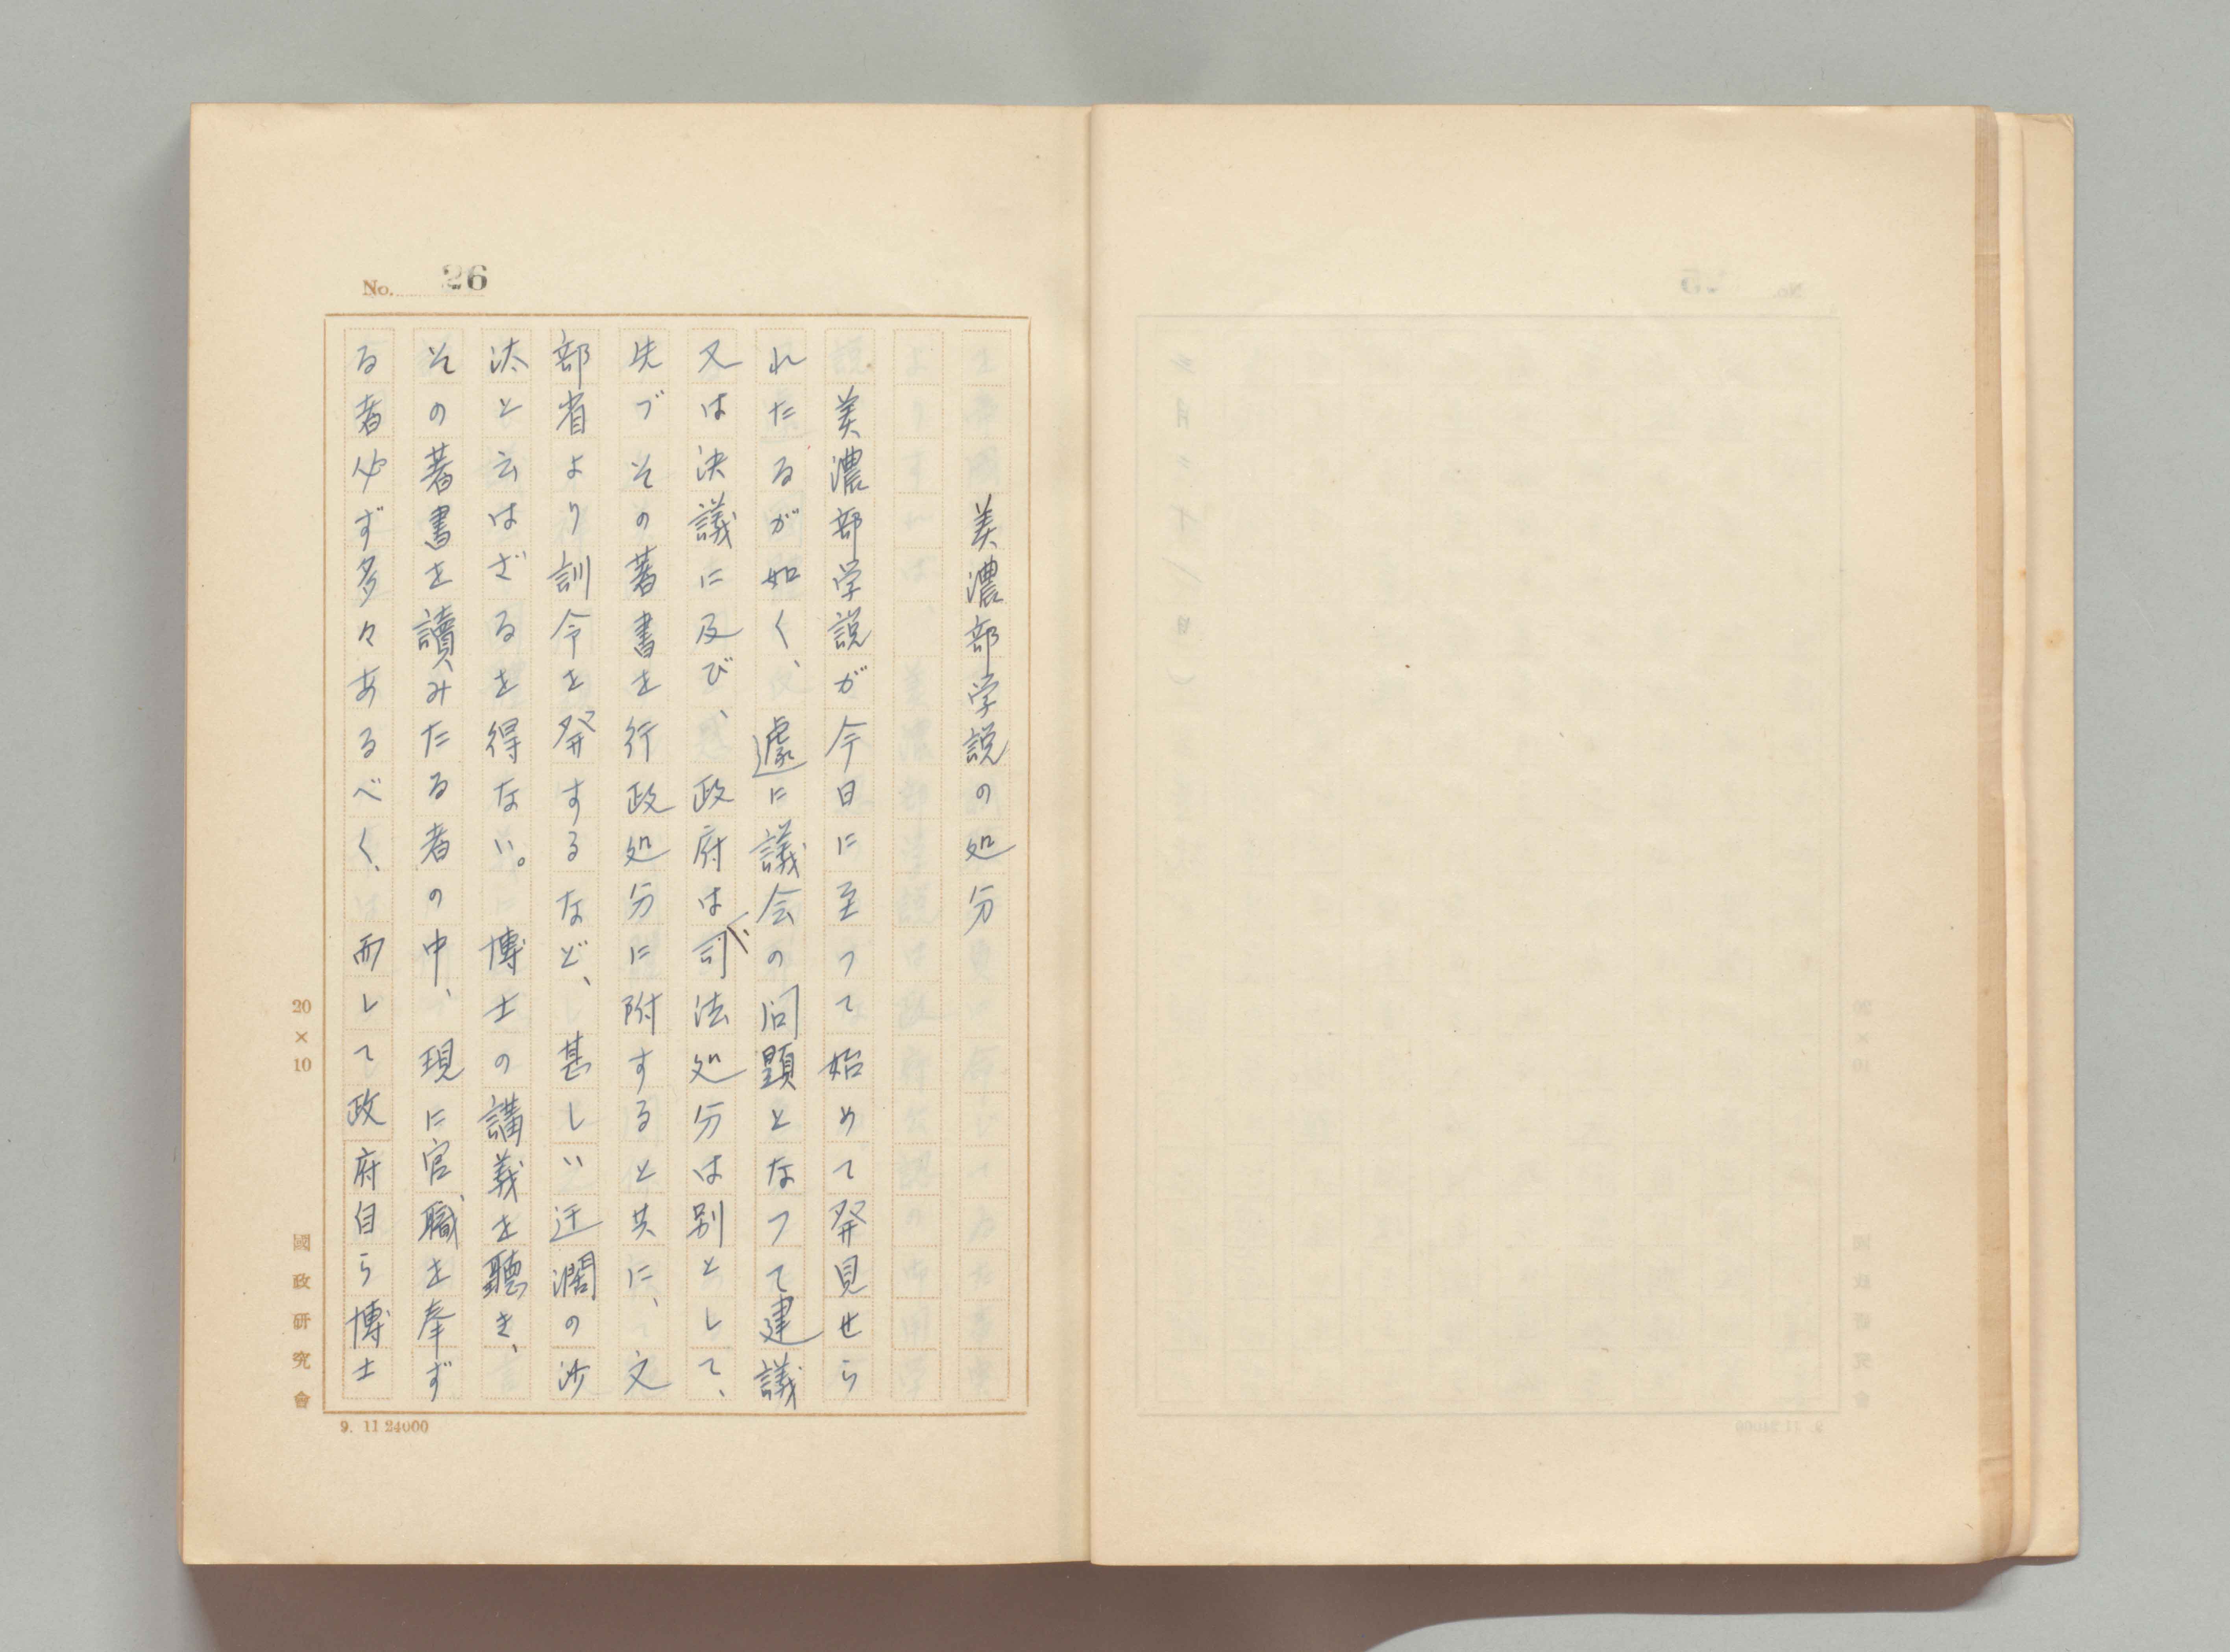 No. 26
美濃部学説の処分
美濃部学説が今日に至つて始めて発見せら
れたるが如く、遽に議会の問題となつて建議
又は決議に及び、政府は司法処分は別として、
先づその著書を行政処分に附すると共に、文
部省より訓令を発するなど、甚しい迂濶の沙
汰と云はざるを得ない。博士の講義を聴き、
その著書を読みたる者の中、現に官職を奉ず
る者必ず多々あるべく、而して政府自ら博士
20×10
國政研究會
9. 11 24000